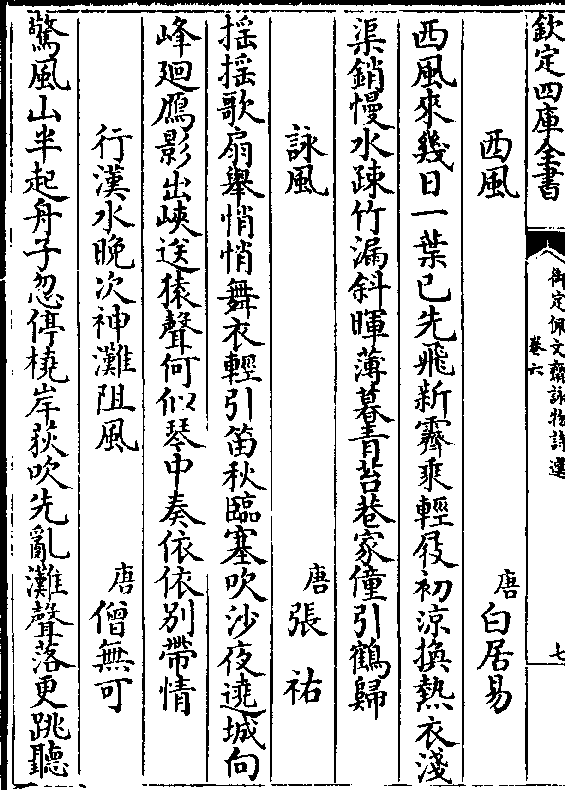 欽定四庫全書
御定佩文齋詠物詩選
卷六
七
西風
唐白居易
西風來幾日一葉已先飛新霽乘輕屐初涼換熱衣淺
渠銷慢水疎竹漏斜暉薄暮青苔巷家僮引鶴歸
詠風
唐張祐
揺揺歌扇舉悄悄舞衣輕引笛秋臨塞吹沙夜遶城向
峰廻鴈影出峽送猿聲何似琴中奏依依别帶情
行漢水晚次神灘阻風
唐僧無可
驚風山半起舟子忽停橈岸荻吹先亂灘聲落更跳聽